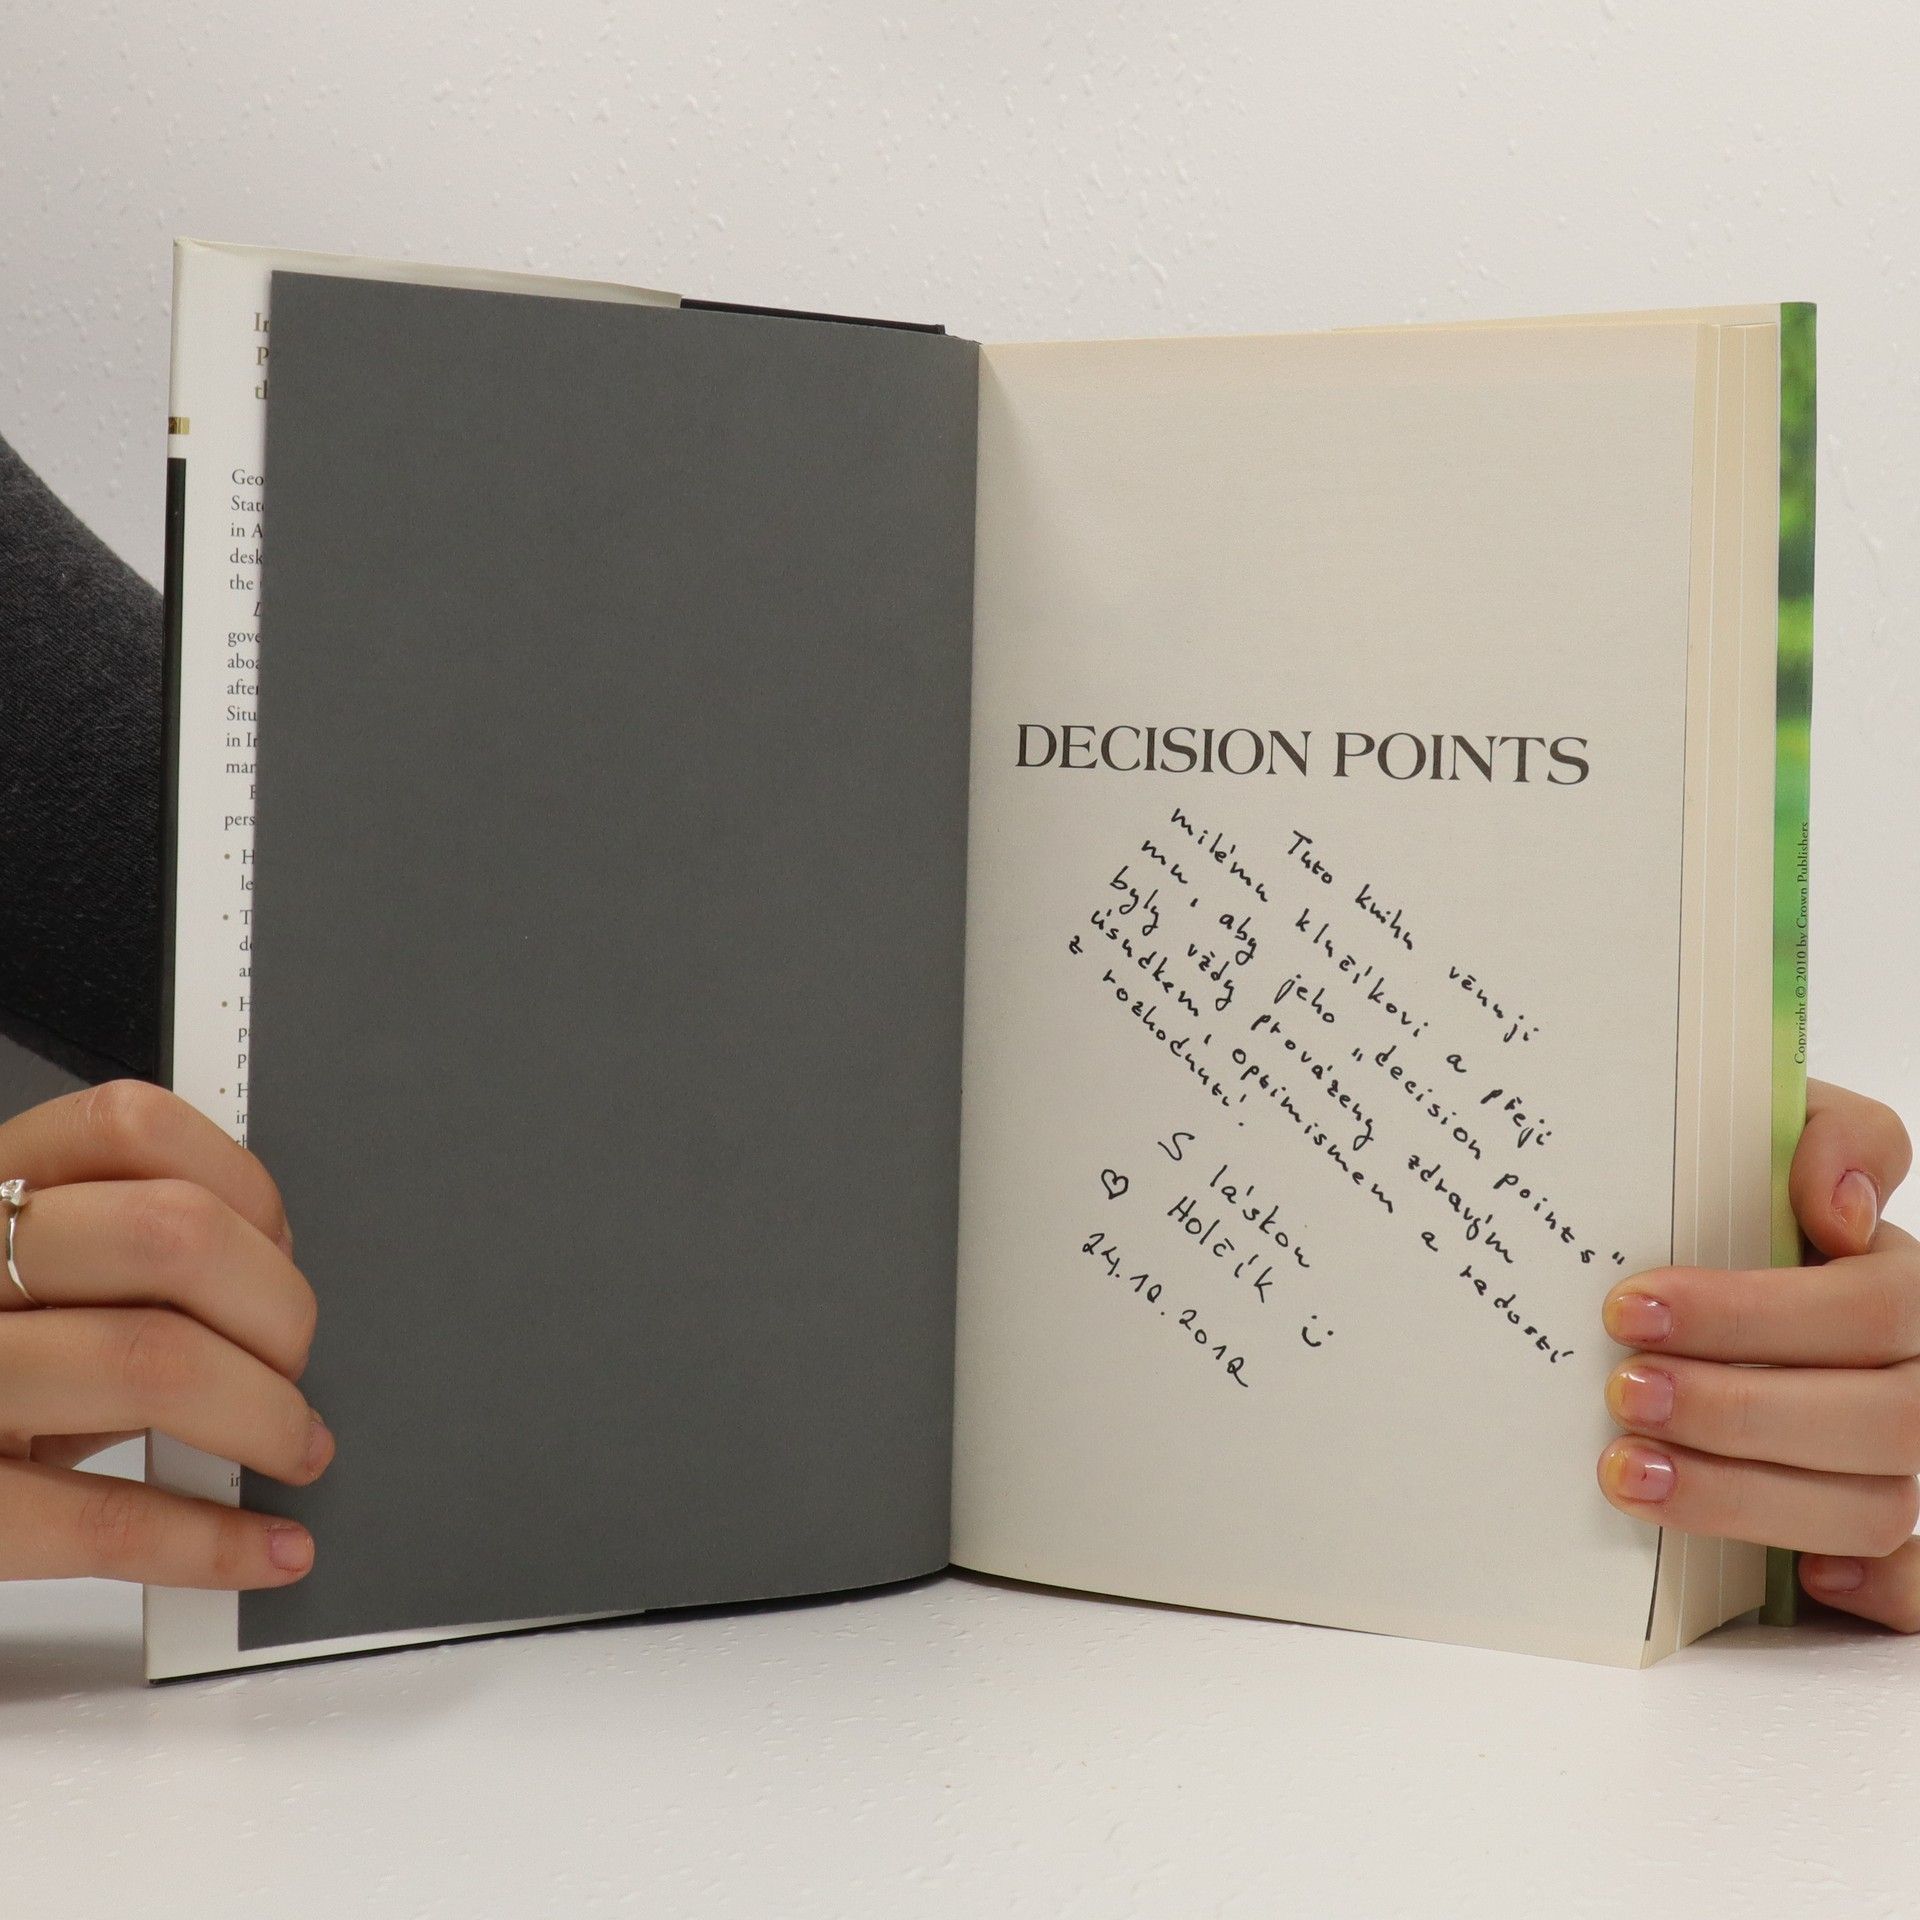 Geo
State
in A
desk
the
gove
aboa
after
Situ
in Ir
man
pers
• H
le
• T
de
an
• H
• H
in
DECISION POINTS
Tuto knihu věnuji
milému klučíkovi a přeji
mu, aby jeho "decision points"
byly vždy provázeny zdravým
úsudkem, optimismem a radostí
z rozhodnutí.
S láskou
♡ Holčík :)
24.12.2012
Copyright © 2010 by Crown Publishers